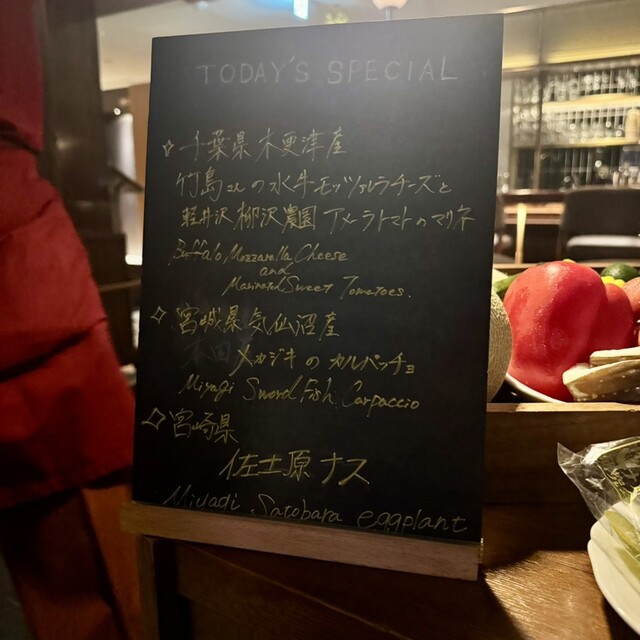 TODAY'S SPECIAL
☆ 千葉県木更津産
竹島さんの水牛モッツァレラチーズと
軽井沢 柳沢農園 アメーラトマトのマリネ
Buffalo Mozzarella Cheese
and
Marinated Sweet Tomatoes.
☆ 宮城県気仙沼産
メカジキのカルパッチョ
Miyagi Sword Fish Carpaccio
☆ 宮崎県
佐土原ナス
Miyagi. Satobara eggplant